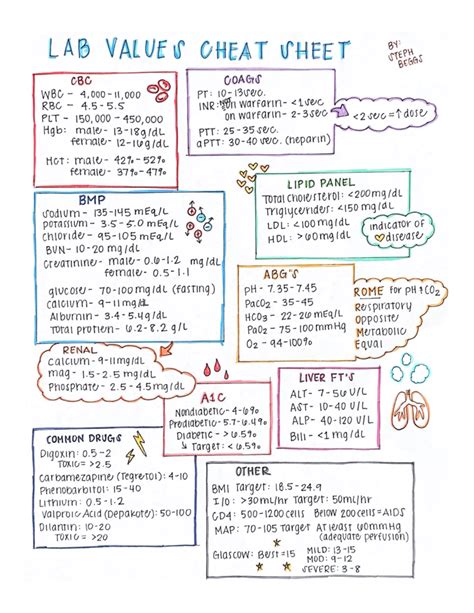 LAB VALUES CHEAT SHEET
BY:
STEPH
BEGGS
CBC
WBC - 4,000-11,000
RBC - 4.5-5.5
PLT - 150,000-450,000
Hgb: male - 13-18g/dl
female - 12-16g/dl
Hct: male - 42%-52%
female - 37%-47%
COAGS
PT: 10-13sec.
INR: non warfarin - <1sec
on warfarin - 2-3sec
<2sec = ↑dose
PTT: 25-35 sec.
aPTT: 30-40 sec. (heparin)
BMP
Sodium - 135-145 mEq/L
potassium - 3.5-5.0 mEq/L
Chloride - 95-105 mEq/L
BUN - 10-20 mg/dL
Creatinine - male - 0.6-1.2 mg/dL
female - 0.5-1.1
glucose - 70-100mg/dL (fasting)
calcium - 9-11mg/dL
Albumin - 3.4-5.4g/dL
Total protien - 6.2-8.2 g/L
LIPID PANEL
Total cholesterol: <200mg/dL
Triglycerides: <150mg/dL
LDL: <100mg/dL
HDL: >60mg/dL
indicator of
disease
ABG'S
pH - 7.35-7.45
PaCO2 - 35-45
HCO3 - 22-26 mEq/L
PaO2 - 75-100mmHg
O2 - 94-100%
ROME for pH & CO2
Respiratory
Opposite
Metabolic
Equal
RENAL
Calcium - 9-11mg/dL
mag - 1.5-2.5 mg/dL
Phosphate - 2.5-4.5mg/dL
A1C
Nondiabetic - 4-6%
Prediabetic - 5.7-6.4%
Diabetic - > 6.5%
Target: < 6.5%
LIVER FT'S
ALT - 7-56 U/L
AST - 10-40 U/L
ALP - 40-120 U/L
Bili - <1mg/dL
COMMON DRUGS
Digoxin: 0.5-2
TOXIC = >2.5
Carbamezapine (Tegretol): 4-10
Phenobarbitol: 15-40
Lithium: 0.5-1.2
Valproic Acid (Depakote): 50-100
Dilantin: 10-20
TOXIC = >20
OTHER
BMI Target: 18.5-24.9
I/O: >30ml/hr Target: 50ml/hr
CD4: 500-1200cells Below 200cells=AIDS
MAP: 70-105 Target At least 60mmHg
(adequate perfusion)
Glascow: Best=15
MILD: 13-15
MOD: 9-12
SEVERE: 3-8